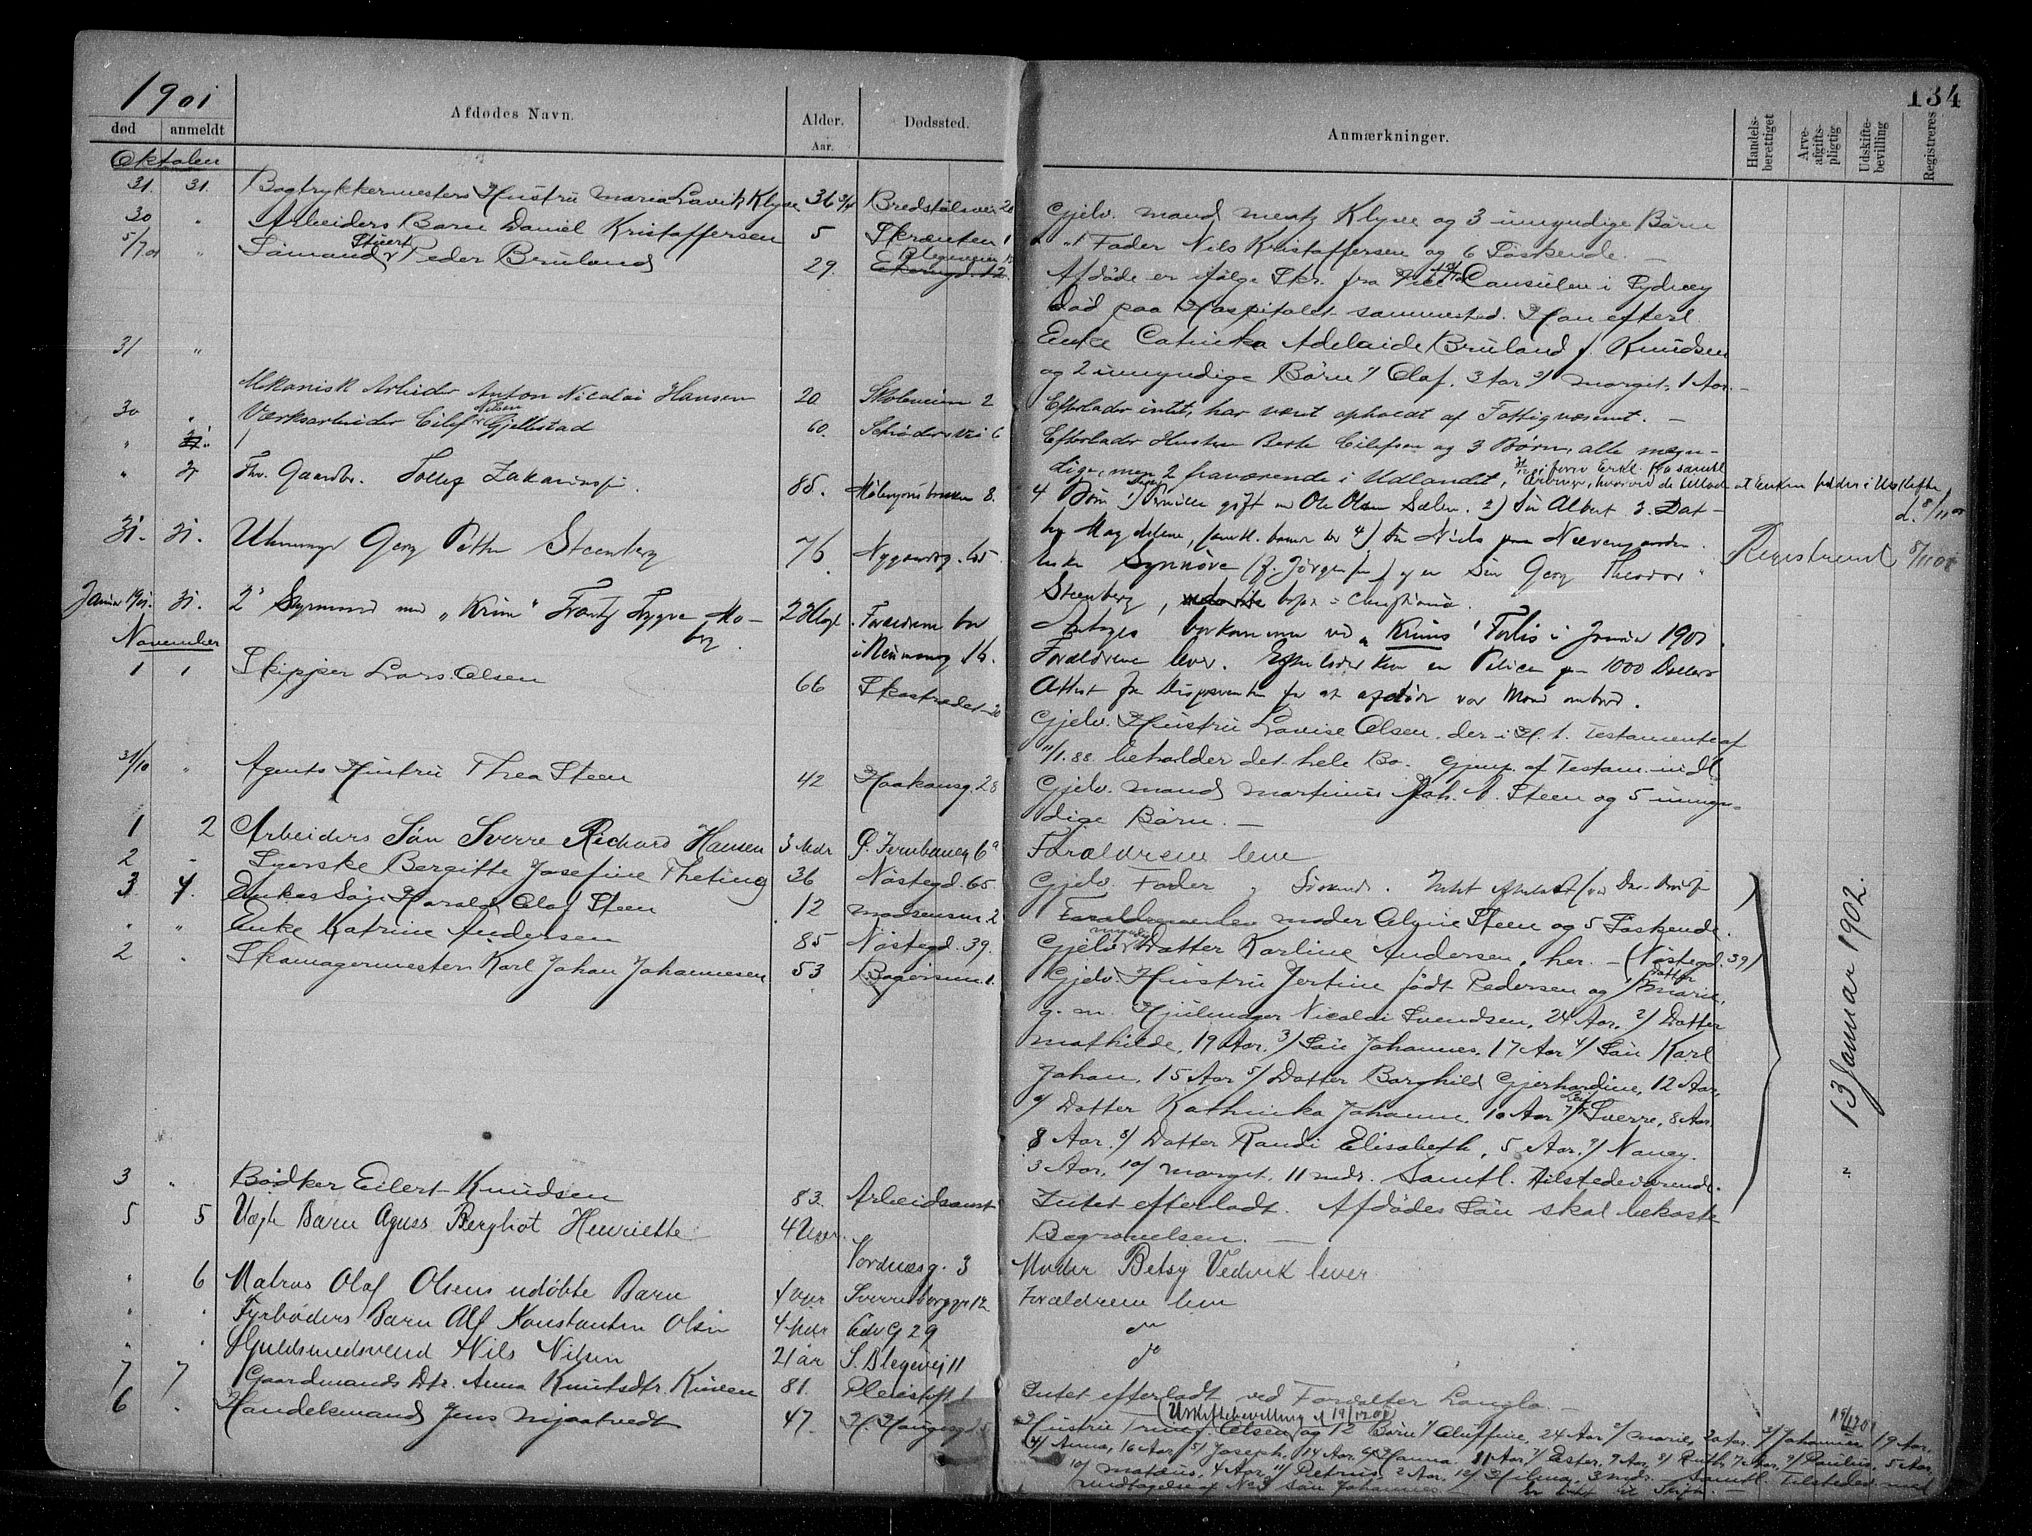 1901
134
Afdødes Navn.
Alder.
Dødssted.
Anmærkninger.
død
anmeldt
Aar.
Handels-
berettiget
Arve-
afgifts-
pligtig
Udskifte-
bevilling
Registreres
Oktober
31. 31. Bogtrykkermesters Hustru Maria Lavik Klyve 36 3/4 Bredstølsvei 20
Gjelv. mand Mentz Klyve og 3 umyndige Børn
30 " Arbeiders Barn Daniel Kristoffersen 5 Skrænten 1
Fader Nils Kristoffersen og 6 Søskende. —
5/7 01 " Sømand Stuert Peder Bruland 29. Blegeveien
Afdøde er ifølge Skr. fra Vice Consulen i Sydney
død paa Hospitalet sammested. Han efterl.
Enke Catinka Adelaide Bruland f. Knudsen
og 2 umyndige Børn 1/ Olaf, 3 Aar 2/ Margit, 1 Aar. —
31 " Mekanisk Arbeider Anton Nicolai Hansen 20 Skoleveien 2
Efterlader intet, har været opholdt af Fattigvæsenet. —
30 " Værksarbeider Eilef Nilsen Gjellestad 60. Schrøders Vei 6
Efterlader Hustru Berte Eilefsen og 3 Børn, alle myn-
dige, men 2 fraværende i Udlandet,
" 31 Fhv. Gaardbr. Tollef Zakariassen 85. 8.
4 Børn 1) Pernille gift m Ole Olsen Sælen. 2) Søn Albert 3. Dat-
ter Magdalene, 4) Søn Niels paa
d. 8/11 01
31. 31. Uhrmager Georg Petter Steenberg 76 Nygaardsg. 65
Enke Synnöve (f. Jørgensen) og en Søn Georg Theodor
Steenberg, bopæl i Christiania.
Registreret 8/11 01
Januar 1901. 31. 2' Styrmand med "Krim" Frantz Trygve Mo-
berg
Forældrene bor
i Neumansg 16.
Antages omkommen ved "Krims" Forlis i Januar 1901
Forældrene lever. Efterlader kun en Police paa 1000 Dollars
Attest fra Disponenten for at afdøde var Mand ombord.
November
1 1 Skipper Lars Olsen 66 Skostrædet 20
Gjelv. Hustru Lovise Olsen, der i H. t. Testamente af
11/1.88 beholder det hele Bo. Gjenp. af Testam. indl.
31/10 " Agents Hustru Thea Steen 42 Haakonsg. 28
Gjelv. mand Martinus Joh. A. Steen og 5 umyn-
dige Børn. —
1 2 Arbeiders Søn Sverre Richard Hansen 3 Mdr Ø. Jernbaneg 6a
Forældrene leve
2 - Syerske Bergitte Josefine Theting 36 Nøstegd. 65
Gjelv. Fader og Søskende.
3 4. Enkes Søn Harald Olaf Steen 12 Madsensm. 2
Forældrene leve Moder Alvine Steen og 5 Søskende.
" " Enke Katrine Andersen 85 Nøstegd. 39.
Gjelv. myndig Datter Karline Andersen, her. — (Nøstegd. 39)
2 " Skomagermester Karl Johan Johannesen 53 Bagersm. 1.
Gjelv. Hustru Jertine født Pedersen og 1/ Datter Marie,
g. m. Hjulmager Nicolai Svendsen, 24 Aar, 2/ Datter
Mathilde, 19 Aar, 3/ Søn Johannes, 17 Aar 4/ Søn Karl
Johan, 15 Aar 5/ Datter Borghild Gjerhardine, 12 Aar,
6/ Datter Kathinka Johanne, 10 Aar 7/ Søn Sverre, 8 Aar
8 Aar. 8/ Datter Randi Elisabeth, 5 Aar. 9/ Nancy.
3 Aar, 10/ Margit, 11 mdr. Samtl. tilstedeværende.
13 Januar 1902.
3 " Bødker Eilert Knudsen 83. Arbeidsanst
Intet efterladt. Afdødes Søn skal bekoste
Begravelsen. —
5 5 Uægte Barn Agnes Bergliot Henriette 4 Uger. Nordnæsg. 3
Moder Betsy Vedvik lever
" 6 Matros Olaf Olsens udøbte Barn 4 uger Sverresborggt 12
Forældrene leve
" " Fyrbøders Barn Alf Konstantin Olsen 4 Mdr Edv G 29
do
" " Guldsmedsvend Nils Nilsen 21 år S. Blegevej 11
do
7 7 Gaardmands Dtr. Anna Knutsdtr. Kinsen 81. Pleiestift.
Intet efterladt ved Forvalter Langlo. —
6 " Handelsmand Jens Mjaatvedt 47. H. Haugesgd. 5
(Udskiftebevilling af 19/12 01)
19/12 01
Hustru f. Olsen og 12 Børn 1/ Oluffine, 24 Aar 2/ Marie, 20 Aar. 3/ Johannes 19 Aar.
4/ Anna, 16 Aar. 5/ Joseph, 14 Aar. 6/ Hanna, 11 Aar. 7/ Ester, 9 Aar. 8/ Ruth, 7 Aar. 9/ Paulus, 5 Aar.
10/ Matæus, 4 Aar. 11/ Petrus, 2 Aar. 12/ Hilma, 3 mdr. — Samtl. Tilstede med
Undtagelse af Søn Johannes